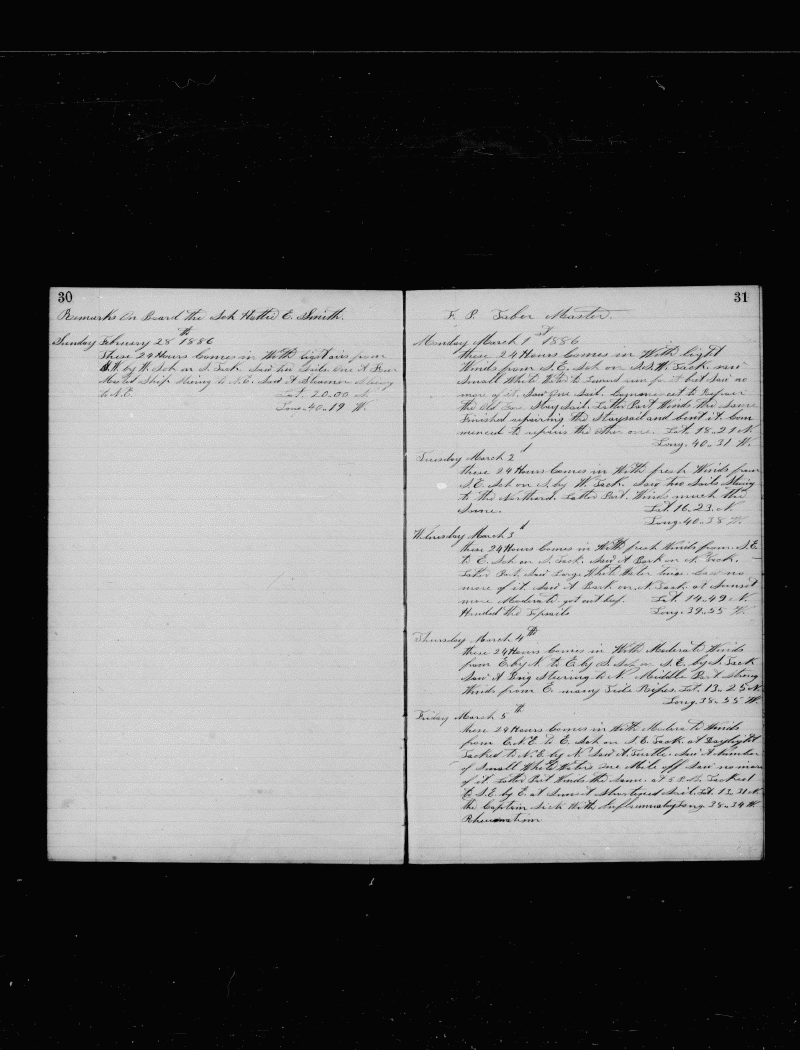 30
Remarks On Board the Sch Hattie E. Smith.
Sunday February 28th 1886
These 24 Hours Comes in With light airs from
by W. Sch on S. Tack. Saw two Sails One A Four
Masted Ship Stering to N.E. Saw A Steamer Stering
to N.E. Lat. 20.00 N
Long. 40.19 W.
31
F. S. Taber Master.
Monday March 1st 1886
these 24 Hours Comes in With light
Winds from S.E. Sch on S.S.W. Tack. saw
Small White Water to Leward run for it but Saw no
more of it. Saw One Sail. Commenced to Repair
the Old Fore Stay Sail. Latter Part Winds the Same
Finished repairing the Staysail and bent it. Com
menced to repair the other one. Lat. 18.21 N
Long. 40.31 W.
Tuesday March 2d
these 24 Hours Comes in With fresh Winds from
S.E. Sch on S. by W. Tack. Saw two Sails Stering
to the Northerd. Latter Part. Winds much the
Same. Lat. 16.23. N
Long. 40.38 W.
Wensday March 3d
these 24 Hours Comes in With fresh Winds from. S.E.
to E. Sch on S. Tack. Saw A Bark on N. Tack.
Latter Part. Saw Large White Water Twice. Saw no
more of it. Saw A Bark on N. Tack. at Sunset
more Moderate got out Lat 14.49 N.
Handed the Topsails Long. 39.55 W.
Thursday March 4th
these 24 Hours Comes in With Moderate Winds
from E. by N. to E. by S. Sch on S.E. by S. Tack
Saw A Brig Stering to N. Middle Part Strong
Winds from E. many Tide Ripes. Lat. 13.25 N
Long. 38.55 W.
Friday March 5th
these 24 Hours Comes in With Moderate Winds
from E.N.E. to E. Sch on S.E. Tack. at Daylight
Tacked to N.E. by N. Saw A Turtle. Saw A number
of Small White Waters one Mile off Saw no more
of it Latter Part Winds the Same. at P.M. Tacked
to S.E. by E. at Sunset Shortened Sail. Lat 13.31 N.
the Captain Sick With Inflammatory Long 38.34 W.
Rheumatism